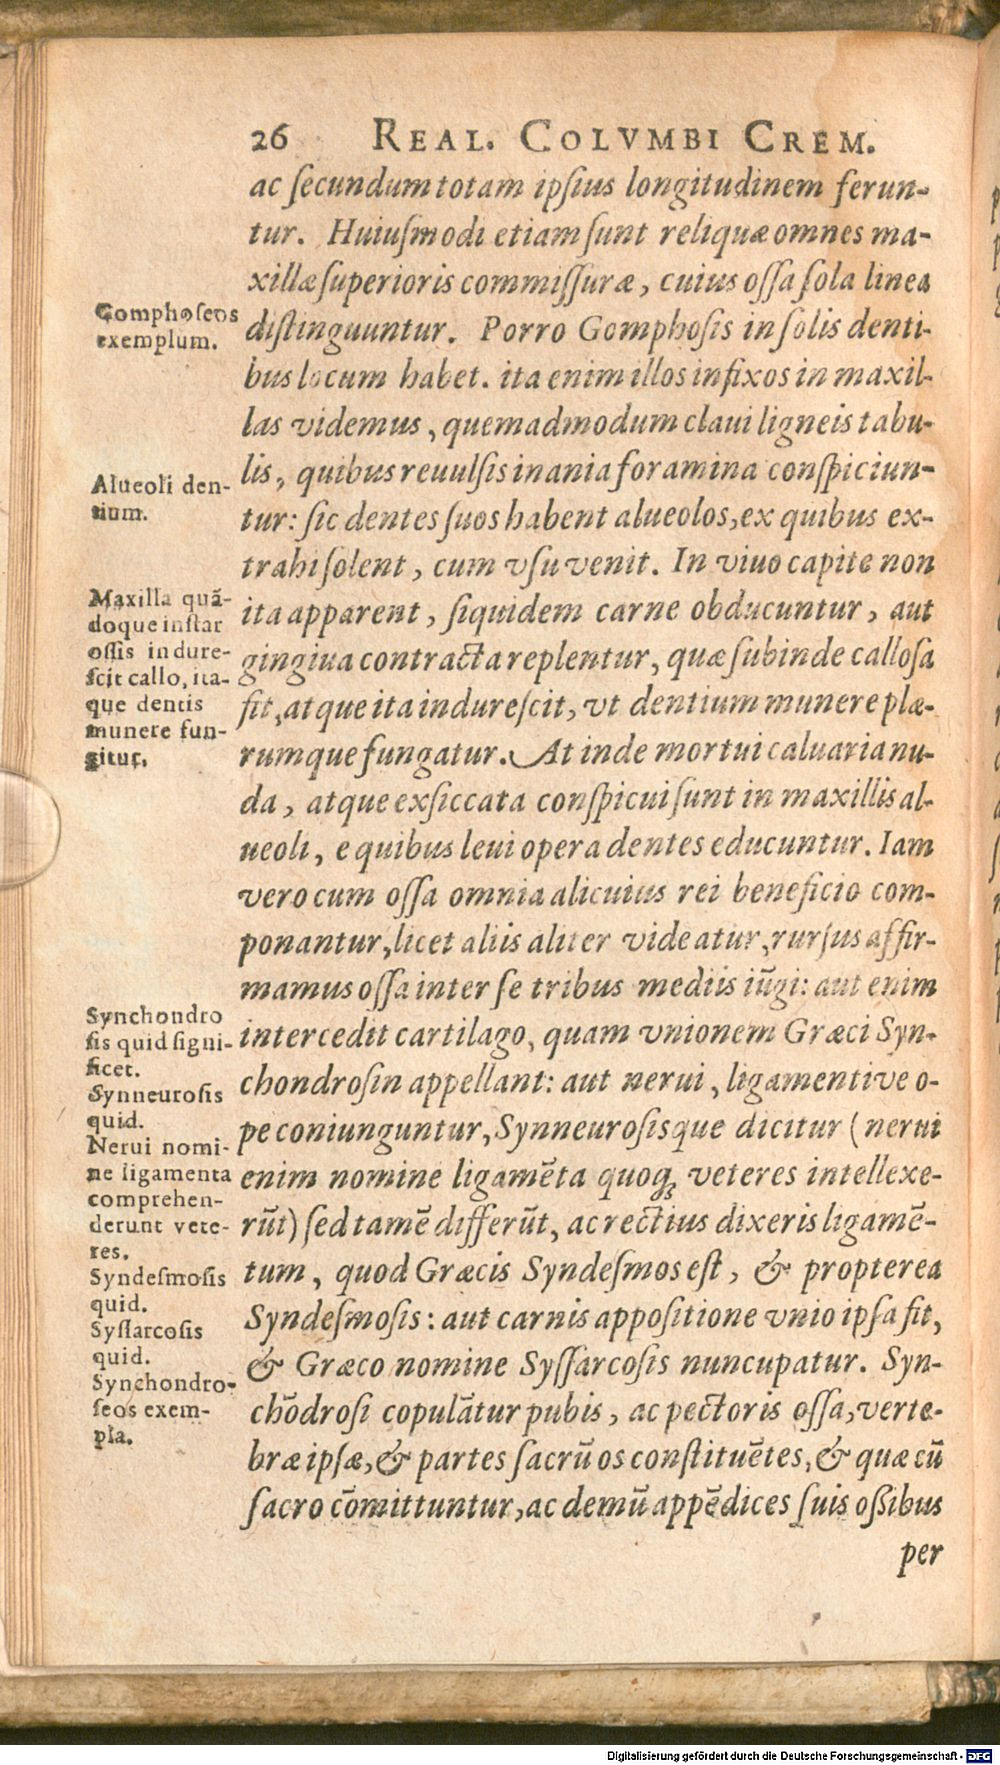 26 REAL. COLVMBI CREM.
ac ſecundum totam ipſius longitudinem ferun-
tur. Huiuſmodi etiam ſunt reliquæ omnes ma-
xillæ ſuperioris commiſſuræ, cuius oſſa ſola linea
diſtinguuntur. Porro Gomphoſis in ſolis denti-
bus locum habet. ita enim illos infixos in maxil-
las videmus, quemadmodum claui ligneis tabu-
lis, quibus reuulſis inania foramina conſpiciun-
tur: ſic dentes ſuos habent alueolos, ex quibus ex-
trahi ſolent, cum vſu venit. In viuo capite non
ita apparent, ſiquidem carne obducuntur, aut
gingiua contracta replentur, quæ ſubinde calloſa
fit, atque ita indureſcit, vt dentium munere plæ-
rumque fungatur. At inde mortui caluaria nu-
da, atque exſiccata conſpicui ſunt in maxillis al-
ueoli, e quibus leui opera dentes educuntur. Iam
vero cum oſſa omnia alicuius rei beneficio com-
ponantur, licet aliis aliter videatur, rurſus affir-
mamus oſſa inter ſe tribus mediis iũgi: aut enim
intercedit cartilago, quam vnionem Græci Syn-
chondroſin appellant: aut nerui, ligamentive o-
pe coniunguntur, Synneuroſisque dicitur (nerui
enim nomine ligamẽta quoq; veteres intellexe-
rũt) ſed tamẽ differũt, ac rectius dixeris ligamẽ-
tum, quod Græcis Syndeſmos eſt, & propterea
Syndeſmoſis: aut carnis appoſitione vnio ipſa fit,
& Græco nomine Syſſarcoſis nuncupatur. Syn-
chõdroſi copulãtur pubis, ac pectoris oſſa, verte-
bræ ipſæ, & partes ſacrũ os conſtituẽtes, & quæ cũ
ſacro cõmittuntur, ac demũ appẽdices ſuis oſſibus
per
Gomphoſeos
exemplum.
Alueoli den-
tium.
Maxilla quã-
doque inſtar
oſſis indure-
ſcit callo, ita-
que dentis
munere fun-
gitur.
Synchondro
ſis quid ſigni-
ficet.
Synneuroſis
quid.
Nerui nomi-
ne ligamenta
comprehen-
derunt vete-
res.
Syndeſmoſis
quid.
Syſſarcoſis
quid.
Synchondro-
ſeos exem-
pla.
Digitalisierung gefördert durch die Deutsche Forschungsgemeinschaft - DFG